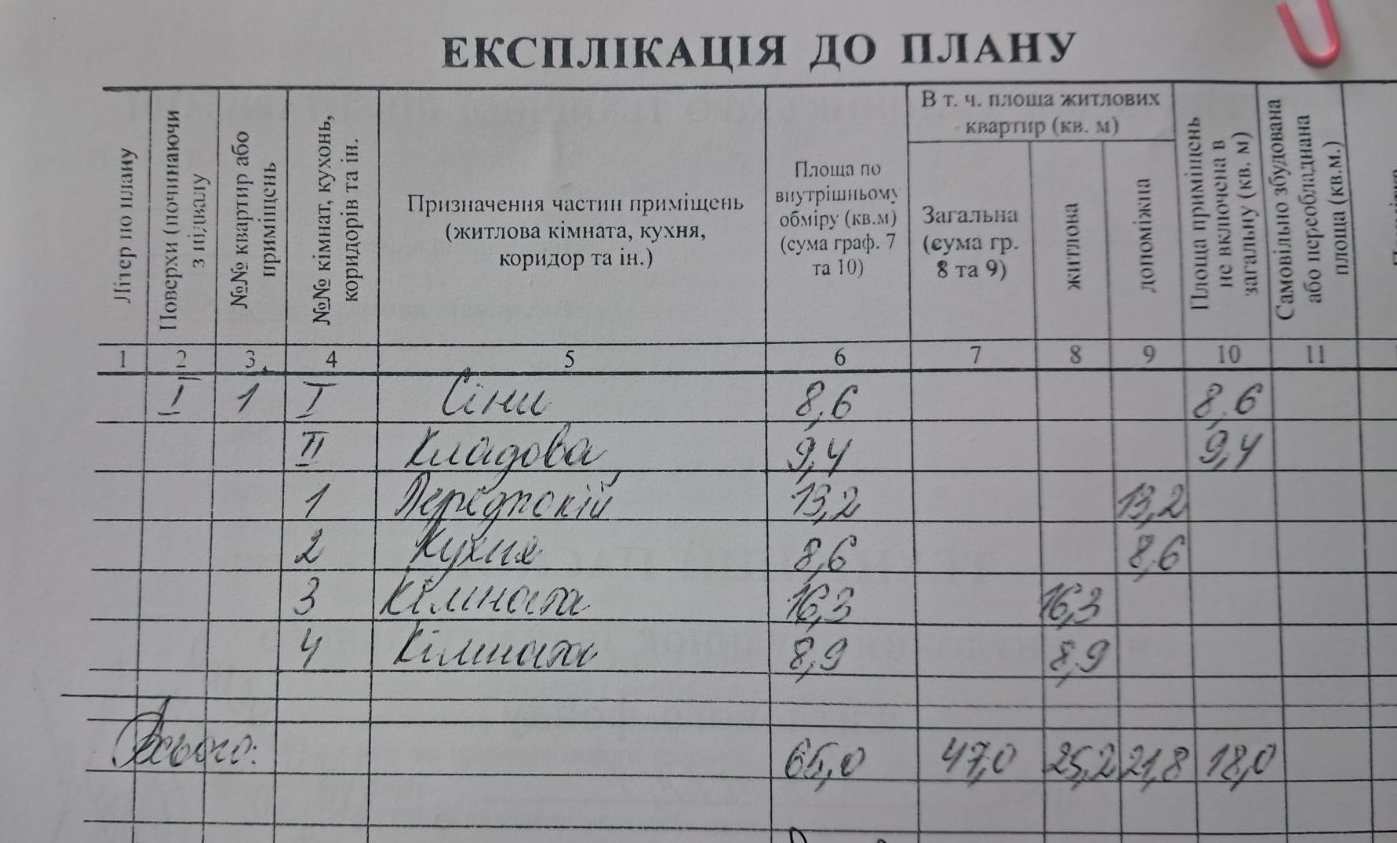 ЕКСПЛІКАЦІЯ ДО ПЛАНУ
Літер по плану
Поверхи (починаючи
з підвалу
№№ квартир або
приміщень
№№ кімнат, кухонь,
коридорів та ін.
Призначення частин приміщень
(житлова кімната, кухня,
коридор та ін.)
Площа по
внутрішньому
обміру (кв.м)
(сума граф. 7
та 10)
В т. ч. площа житлових
квартир (кв. м)
Загальна
(сума гр.
8 та 9)
житлова
допоміжна
Площа приміщень
не включена в
загальну (кв. м)
Самовільно збудована
або переобладнана
площа (кв.м.)
1 2 3 4 5 6 7 8 9 10 11
I 1 I Сіни 8,6 8,6
II Кладова 9,4 9,4
1 Передпокій 13,2 13,2
2 Кухня 8,6 8,6
3 Кімната 16,3 16,3
4 Кімната 8,9 8,9
Всього: 65,0 47,0 25,2 21,8 18,0